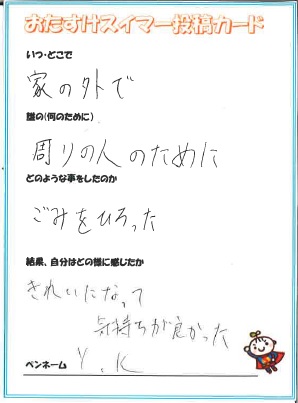 おたすけスイマー投稿カード
いつ・どこで
家の外で
誰の(何のために)
周りの人のために
どのような事をしたのか
ごみをひろった
結果、自分はどの様に感じたか
きれいになって
気持ちが良かった
ペンネーム Y.K